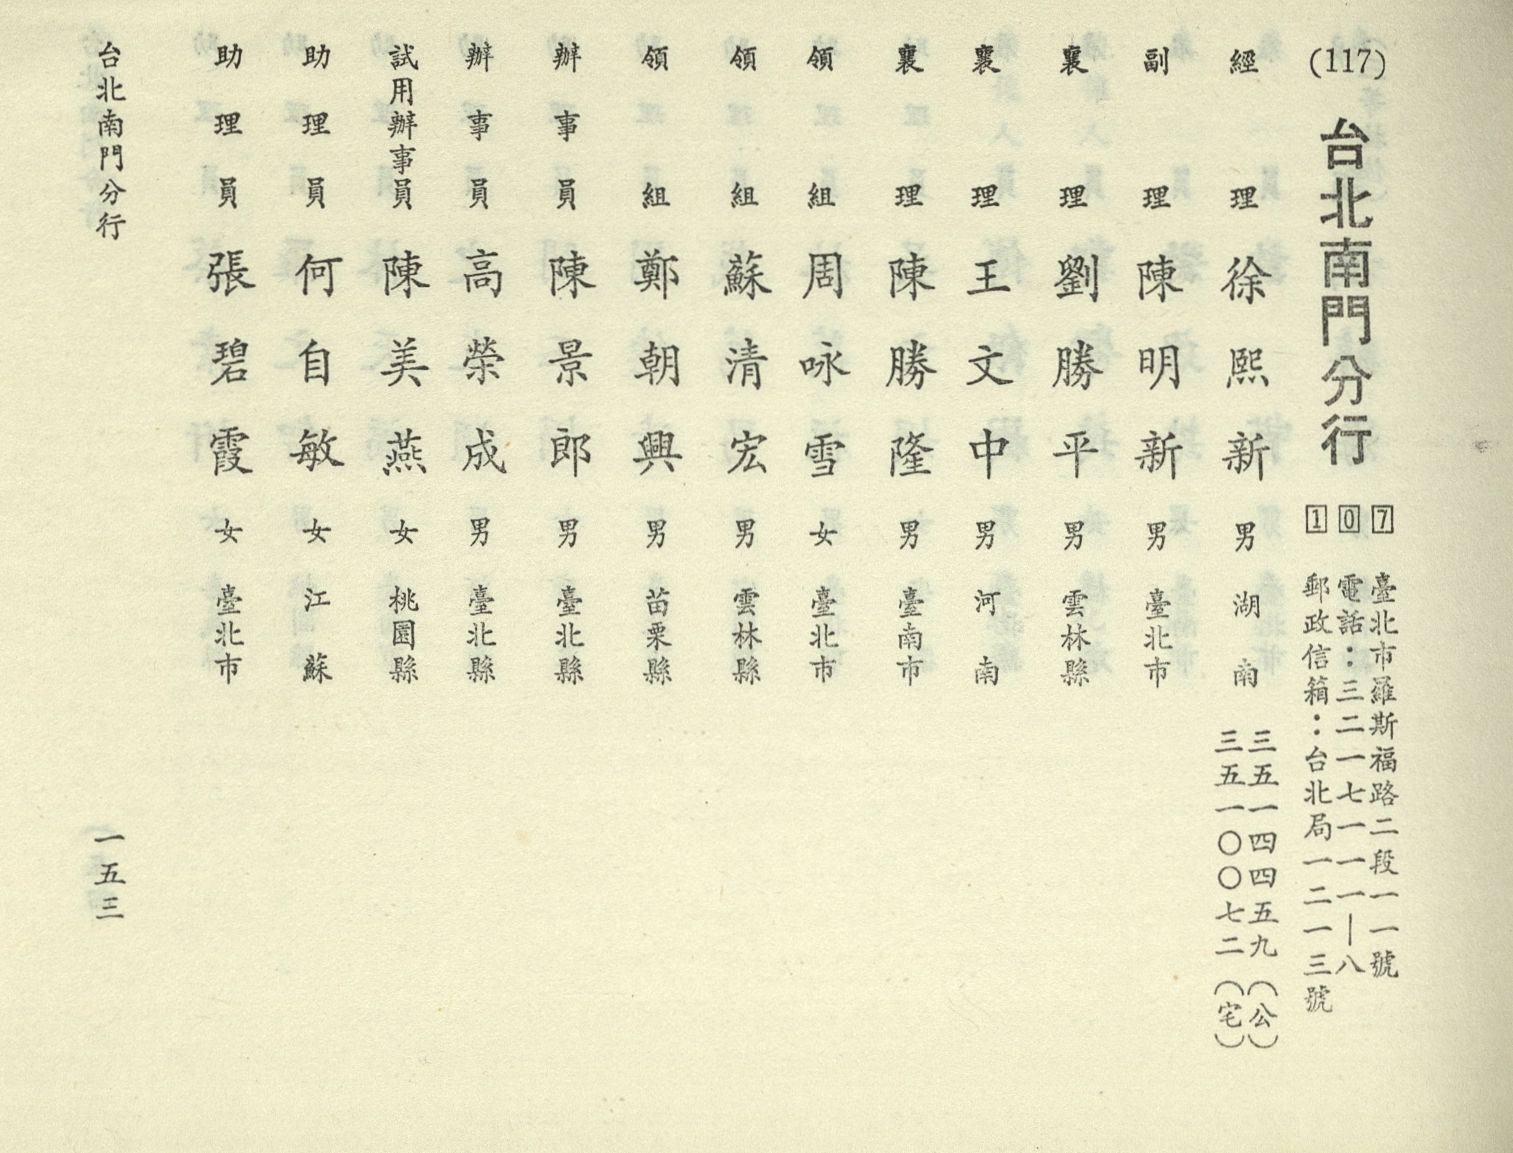 (117)
台北南門分行
107
臺北市羅斯福路二段一一號
電話：三二一七一一一—八
郵政信箱：台北局一二一三號
經理 徐熙新 男 湖南 三五一四四五九（公） 三五一〇〇七二（宅）
副理 陳明新 男 臺北市
襄理 劉勝平 男 雲林縣
襄理 王文中 男 河南
襄理 陳勝隆 男 臺南市
領組 周咏雪 女 臺北市
領組 蘇清宏 男 雲林縣
領組 鄭朝興 男 苗栗縣
辦事員 陳景郎 男 臺北縣
辦事員 高榮成 男 臺北縣
試用辦事員 陳美燕 女 桃園縣
助理員 何自敏 女 江蘇
助理員 張碧霞 女 臺北市
台北南門分行
一五三